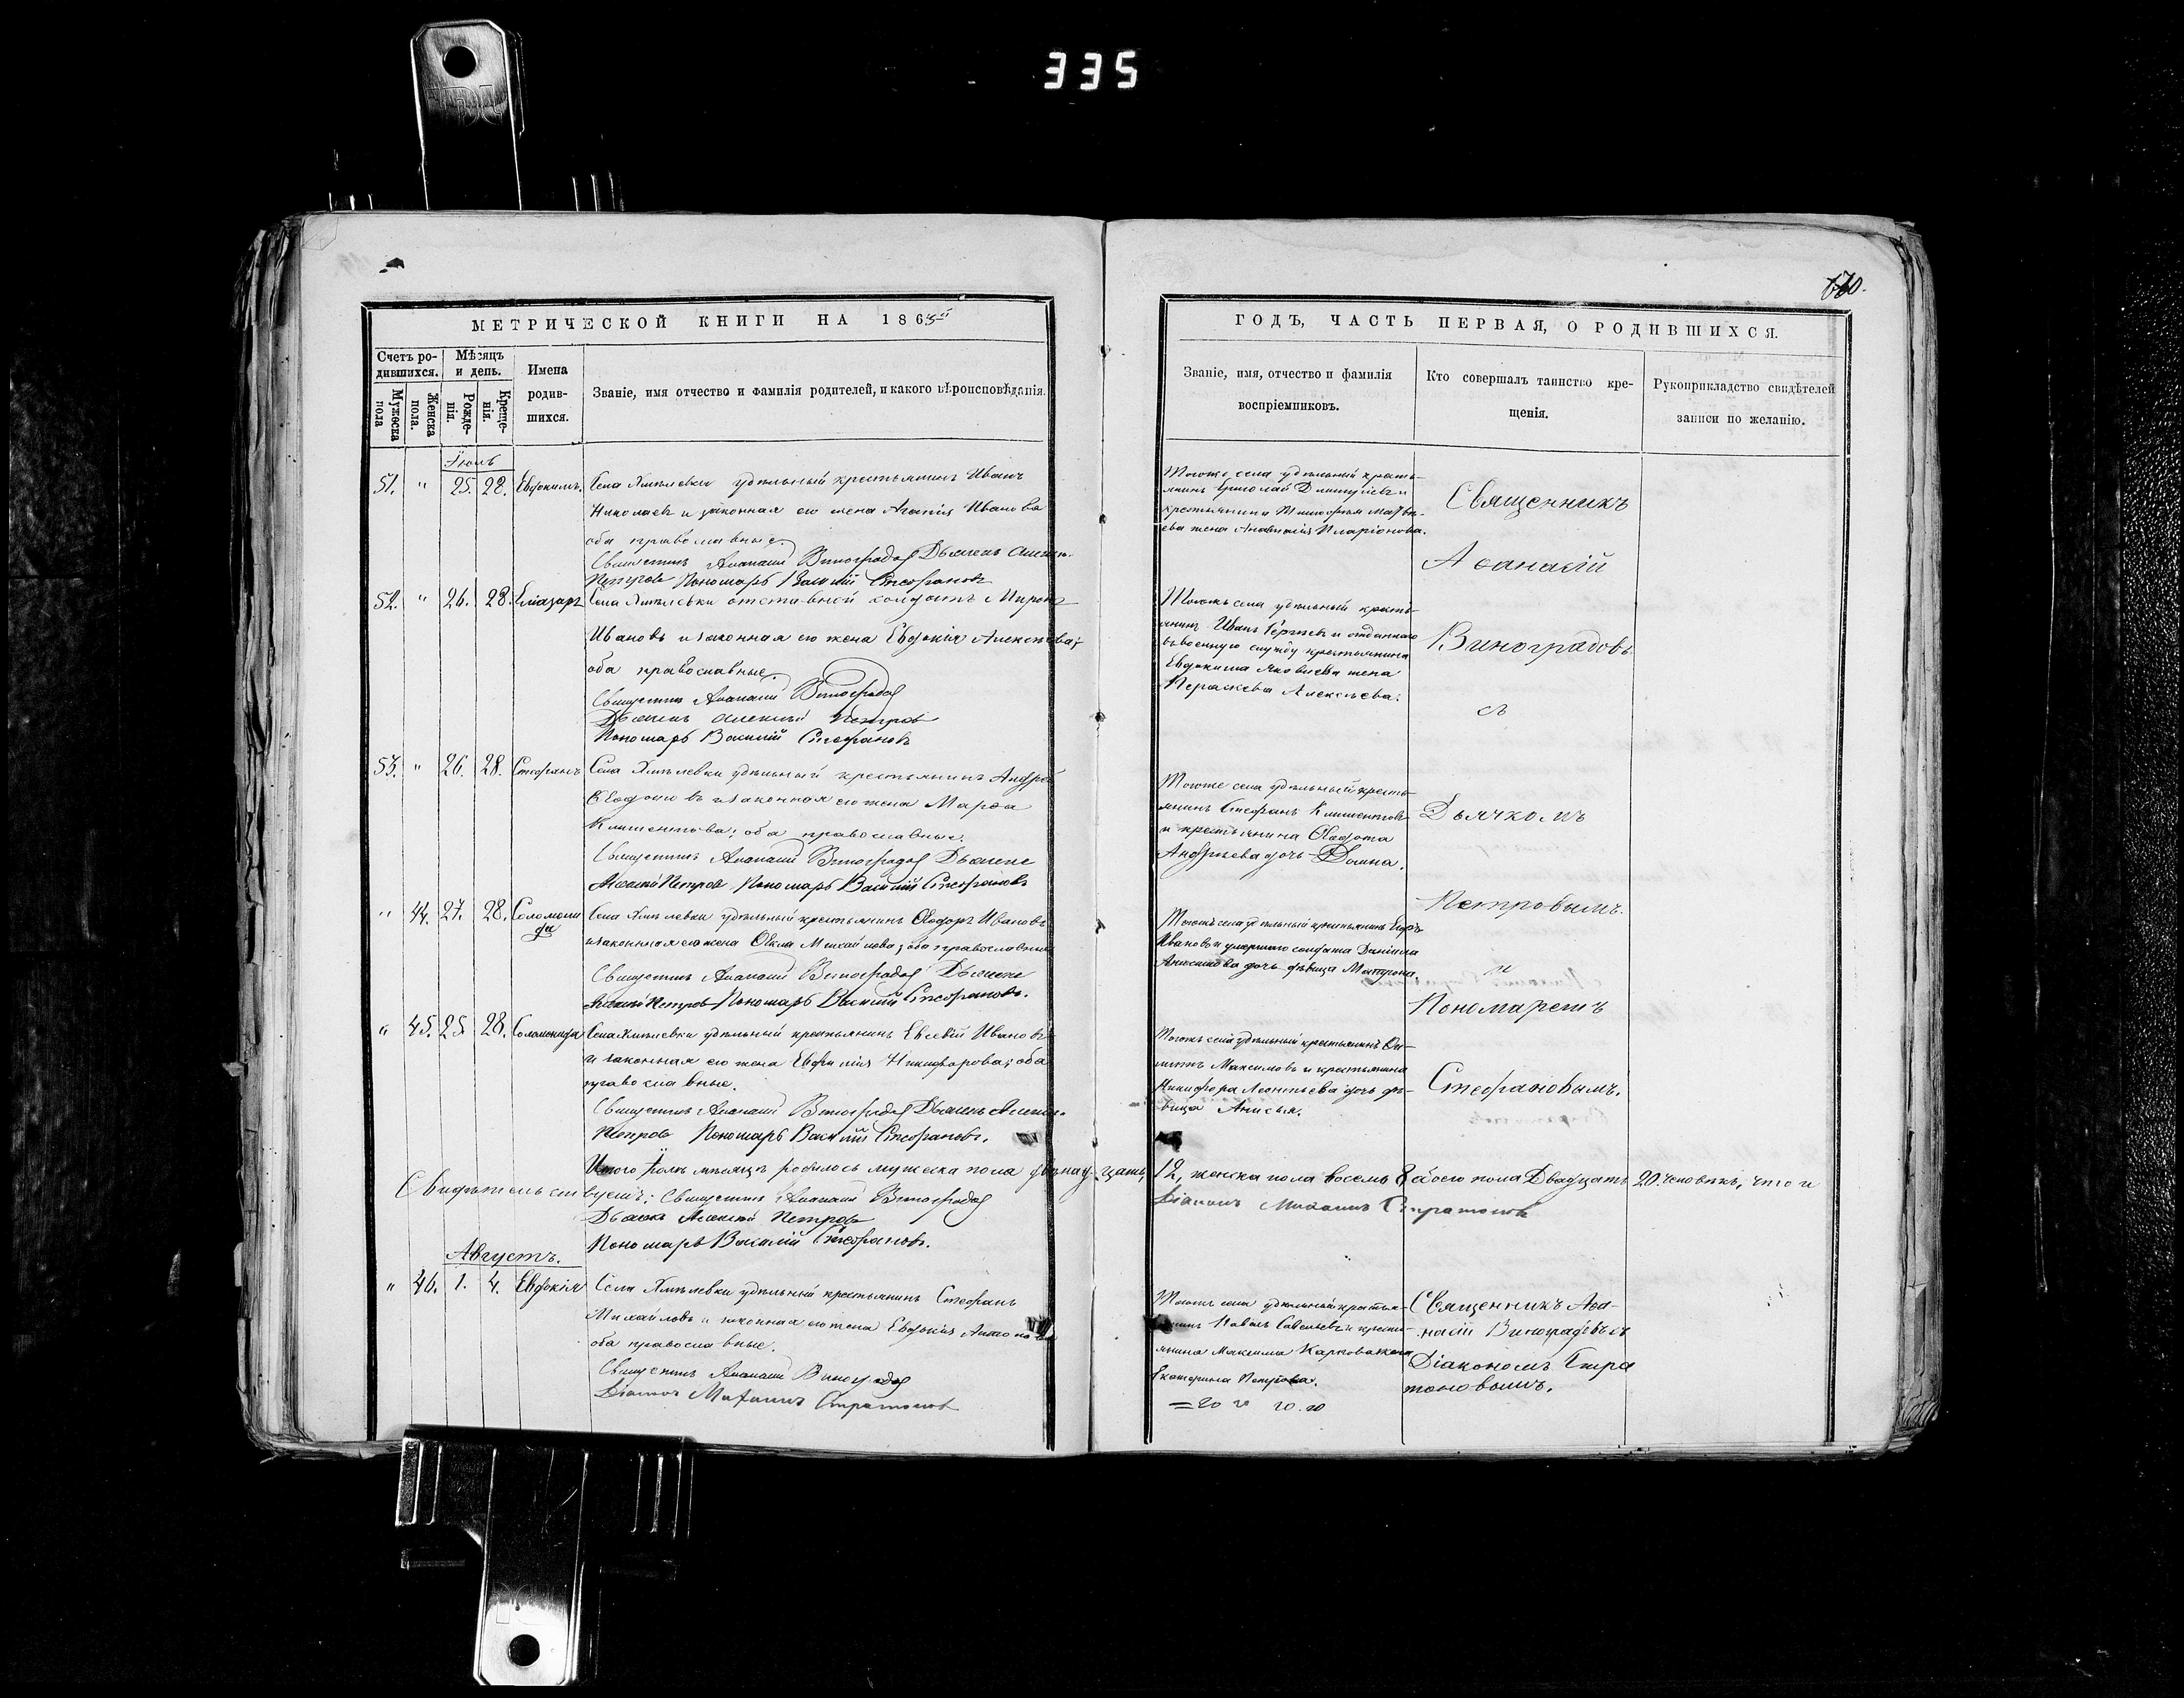 335
670.
МЕТРИЧЕСКОЙ КНИГИ НА 1865й
Счетъ ро-
дившихся.
Мужеска
пола
Женска
пола.
Мѣсяцъ
и день.
Рожде-
нія.
Креще-
нія.
Имена
родив-
шихся.
Званіе, имя отчество и фамилія родителей, и какого вѣроисповѣданія.
Іюль
51. " 25. 28. Евдокимъ. Села Хмѣлевки удѣльный крестьянинъ Иванъ
Николаевъ и законная его жена Агапія Иванова
оба православные.
Священникъ Афанасій Виноградовъ Дьячекъ Алексѣй
Петровъ Пономарь Василій Стефановъ
52. " 26. 28. Еліазаръ Села Хмѣлевки отставной солдатъ Миронъ
Ивановъ и законная его жена Евдокія Алексѣева;
оба православные.
Священникъ Афанасій Виноградовъ
Дьячекъ Алексѣй Петровъ
Пономарь Василій Стефановъ
53. " 26. 28. Стефанъ Села Хмѣлевки удѣльный крестьянинъ Андрей
Ѳедотовъ и законная его жена Марѳа
Климентова; оба православные.
Священникъ Афанасій Виноградовъ Дьячекъ
Алексѣй Петровъ Пономарь Василій Стефановъ
" 44. 27. 28. Соломони
да
Села Хмѣлевки удѣльный крестьянинъ Ѳедоръ Ивановъ
и законная его жена Ѳекла Михайлова; оба православные
Священникъ Афанасій Виноградовъ Дьячекъ
Алексѣй Петровъ Пономарь Василій Стефановъ.
" 45. 25. 28. Соломонида Села Хмѣлевки удѣльный крестьянинъ Евсевій Ивановъ
и законная его жена Евфимія Никифорова; оба
православные.
Священникъ Афанасій Виноградовъ Дьячекъ Алексѣй
Петровъ Пономарь Василій Стефановъ.
Итого Іюль мѣсяцъ родилось мужеска пола двѣнадцать
Свидѣтельствуемъ: Священникъ Афанасій Виноградовъ
Дьячекъ Алексѣй Петровъ
Пономарь Василій Стефановъ.
Августъ.
" 46. 1. 4. Евдокія Села Хмѣлевки удѣльный крестьянинъ Стефанъ
Михайловъ и законная его жена Евдокія Антонова
оба православные.
Священникъ Афанасій Виноградовъ
Діаконъ Михаилъ Стратоновъ
ГОДЪ, ЧАСТЬ ПЕРВАЯ, О РОДИВШИХСЯ.
Званіе, имя, отчество и фамилія
воспріемниковъ.
Кто совершалъ таинство кре-
щенія.
Рукоприкладство свидѣтелей
записи по желанію.
Тогоже села удѣльный кресть-
янинъ Дмитріевъ и
крестьянина Тимофея Матвѣ-
ева жена Анастасія Иларіонова.
Тогожъ села удѣльный кресть-
янинъ Иванъ Сергѣевъ и отданнаго
въ военную службу крестьянина
Евдокима Яковлева жена
Параскева Алексѣева.
Тогоже села удѣльный кресть-
янинъ Стефанъ Климентовъ
и крестьянина Ѳедота
Андреева дочь Домна.
Тогожъ села удѣльный крестьянинъ Егоръ
Ивановъ и умершаго солдата Даніила
Анисимова дочь дѣвица Матрона.
Тогожъ села удѣльный крестьянинъ
Максимовъ и крестьянина
Никифора Леонтьева дочь дѣ-
вица Анисья.
Священникъ
Аѳанасій
Виноградовъ
съ
Дьячкомъ
Петровымъ.
и
Пономаремъ
Стефановымъ.
12, женска пола восемь 8 обоего пола Двадцать 20. человѣкъ, что и
Діаконъ Михаилъ Стратоновъ
Тогожъ села удѣльный крестья-
нинъ Павелъ Савельевъ и кресть-
янина Максима
Екатерина Петрова.
Священникъ Аѳа-
насій Виноградовъ съ
Діакономъ Стра
тоновымъ.